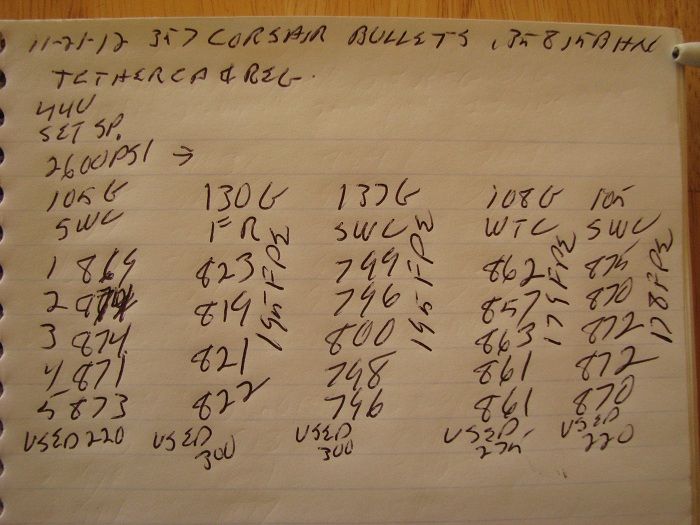 11-21-12 357 CORSAIR BULLETS .358 15BHN
TETHERED & REG.
440
SET SP.
2600PSI →
105G 130G 137G 108G 105
SWC FR SWC WTC SWC
1 869 823 799 862 875
2 874 819 796 857 870
3 874 821 800 863 872
4 871 822 798 861 872
5 873 822 796 861 870
195 FPE 195 FPE 179 FPE 178 FPE
USED 220 USED 300 USED 300 USED 275 USED 220